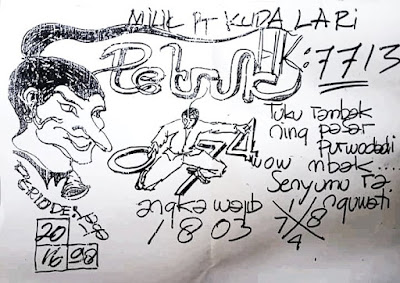 MILIK PT KUDA LARI
K: 7713
Tuku Tambak
ning pasar
Purwodadi
wow mbak....
Senyumu Ta
nguwati
PERIODE
20
16 98
angka wajib
1803
7 8
4